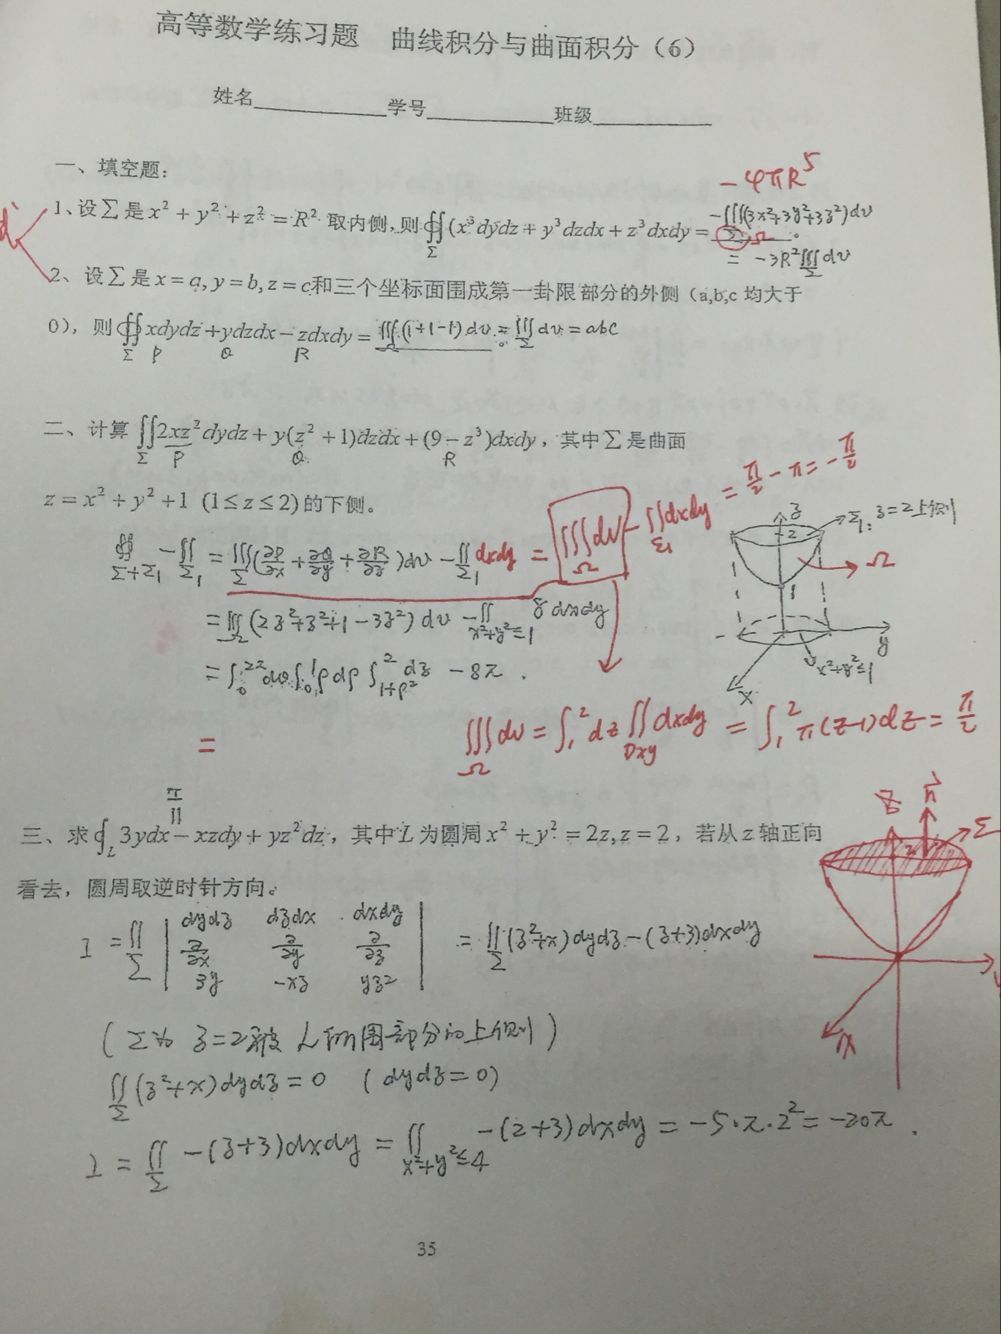 高等数学练习题 曲线积分与曲面积分（6）
姓名____________学号____________班级____________
一、填空题：
-4πR⁵
1、设∑是x²+y²+z²=R²取内侧，则∯_Σ(x³dydz+y³dzdx+z³dxdy=-∭_Ω(3x²+3y²+3z²)dv。
= -3R²∭_Σdv
2、设∑是x=a,y=b,z=c和三个坐标面围成第一卦限部分的外侧（a,b,c均大于
0），则∯_Σ xdydz+ydzdx-zdxdy=∭_Ω(1+1-1)dv=∭_Σdv=abc。
P Q R
二、计算∬_Σ2xz²dydz+y(z²+1)dzdx+(9-z³)dxdy，其中∑是曲面
P Q R
z=x²+y²+1 (1≤z≤2)的下侧。
∯_{Σ+Σ1}-∬_{Σ1}=∭_Σ(∂P/∂x+∂Q/∂y+∂R/∂z)dv-∬_{Σ1}dxdy=∭_Ωdv-∬_{Σ1}dxdy=π/2-π=-π/2
=∭_Ω(2z²+z²+1-3z²)dv-∬_{x²+y²≤1}8dxdy
=∫₀^{2π}dθ∫₀¹ρdρ∫_{1+ρ²}^2dz-8π.
z 2 Σ1: z=2上侧 Ω 1 y x x²+y²≤1
= ∭_Ωdv=∫₁²dz∬_{Dxy}dxdy=∫₁²π(z-1)dz=π/2
三、求∮_L3ydx-xzdy+yz²dz，其中L为圆周x²+y²=2z,z=2，若从z轴正向
看去，圆周取逆时针方向。
z n Σ 2 x
I=∬_Σ | dydz dzdx dxdy | =∬_Σ(z²+x)dydz-(z+3)dxdy
∂/∂x ∂/∂y ∂/∂z
3y -xz yz²
(Σ为z=2被L所围部分的上侧)
∬_Σ(z²+x)dydz=0 (dydz=0)
I=∬_Σ-(z+3)dxdy=∬_{x²+y²≤4}-(2+3)dxdy=-5·π·2²=-20π.
35